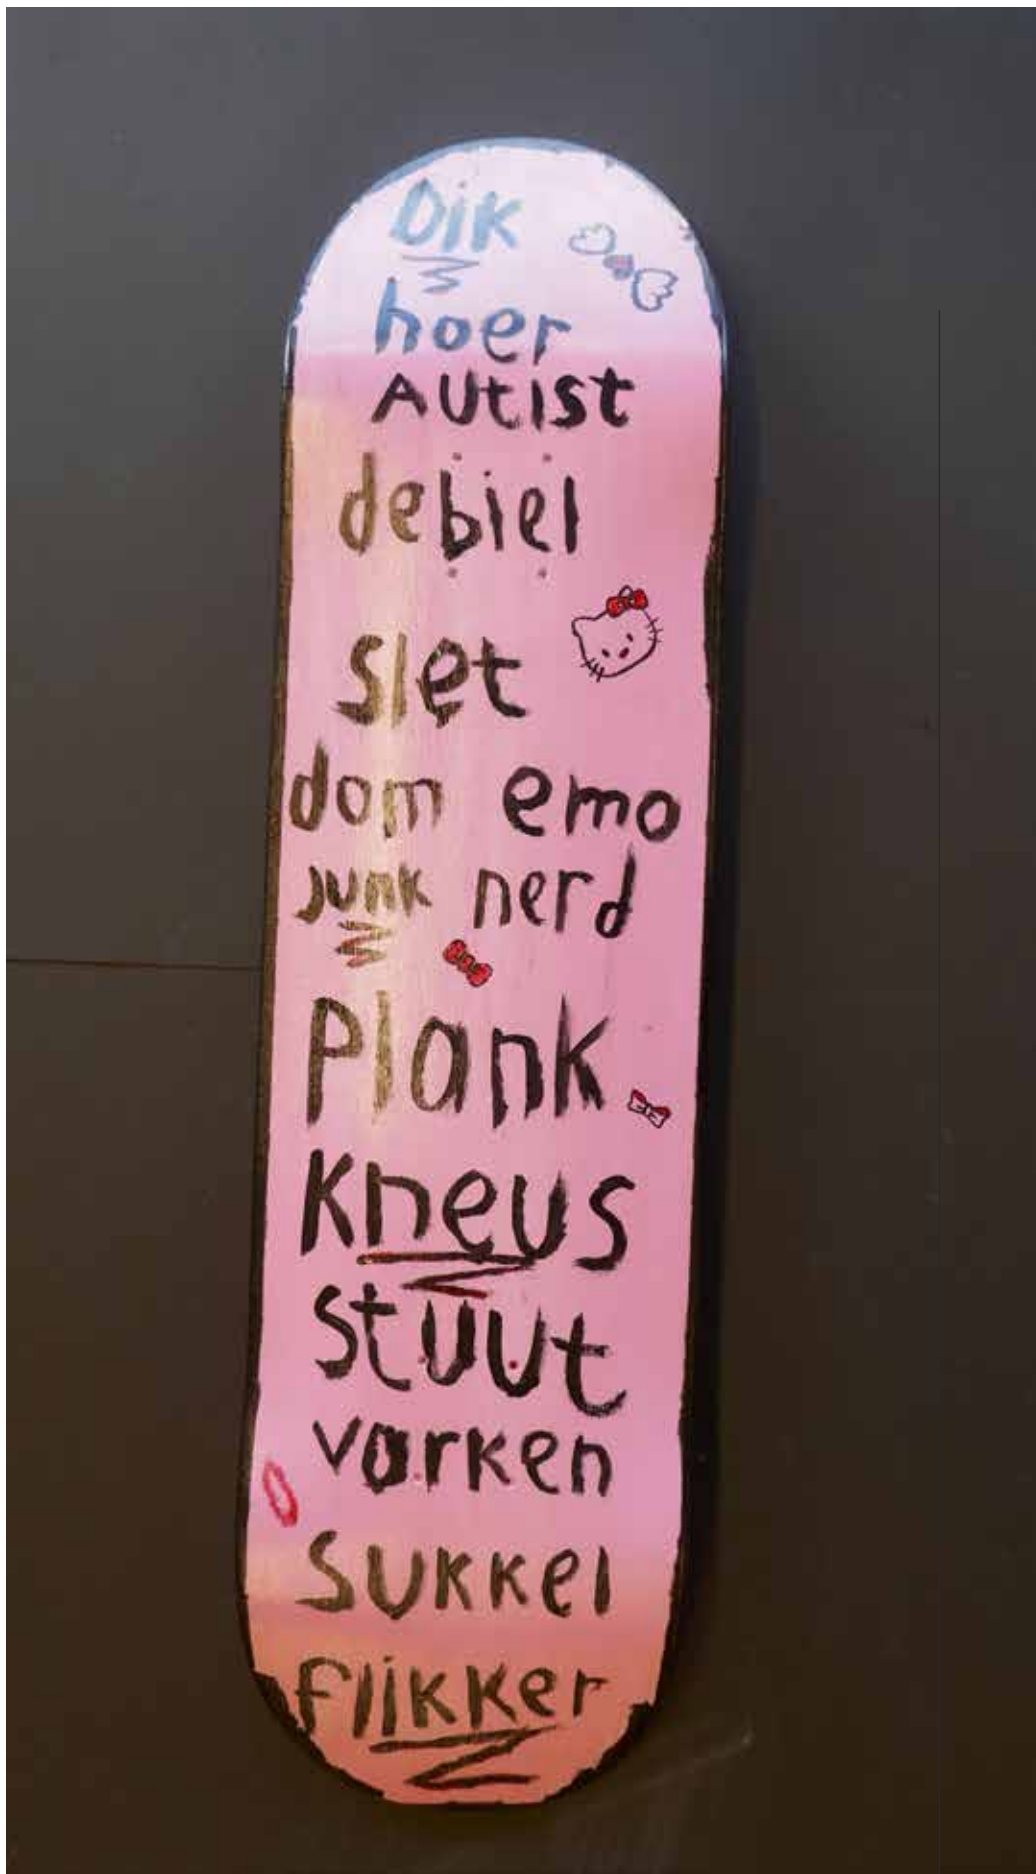 Dik
hoer
AUtist
debiel
slet
dom emo
junk nerd
Plank
Kneus
stuut
varken
sukkel
flikker